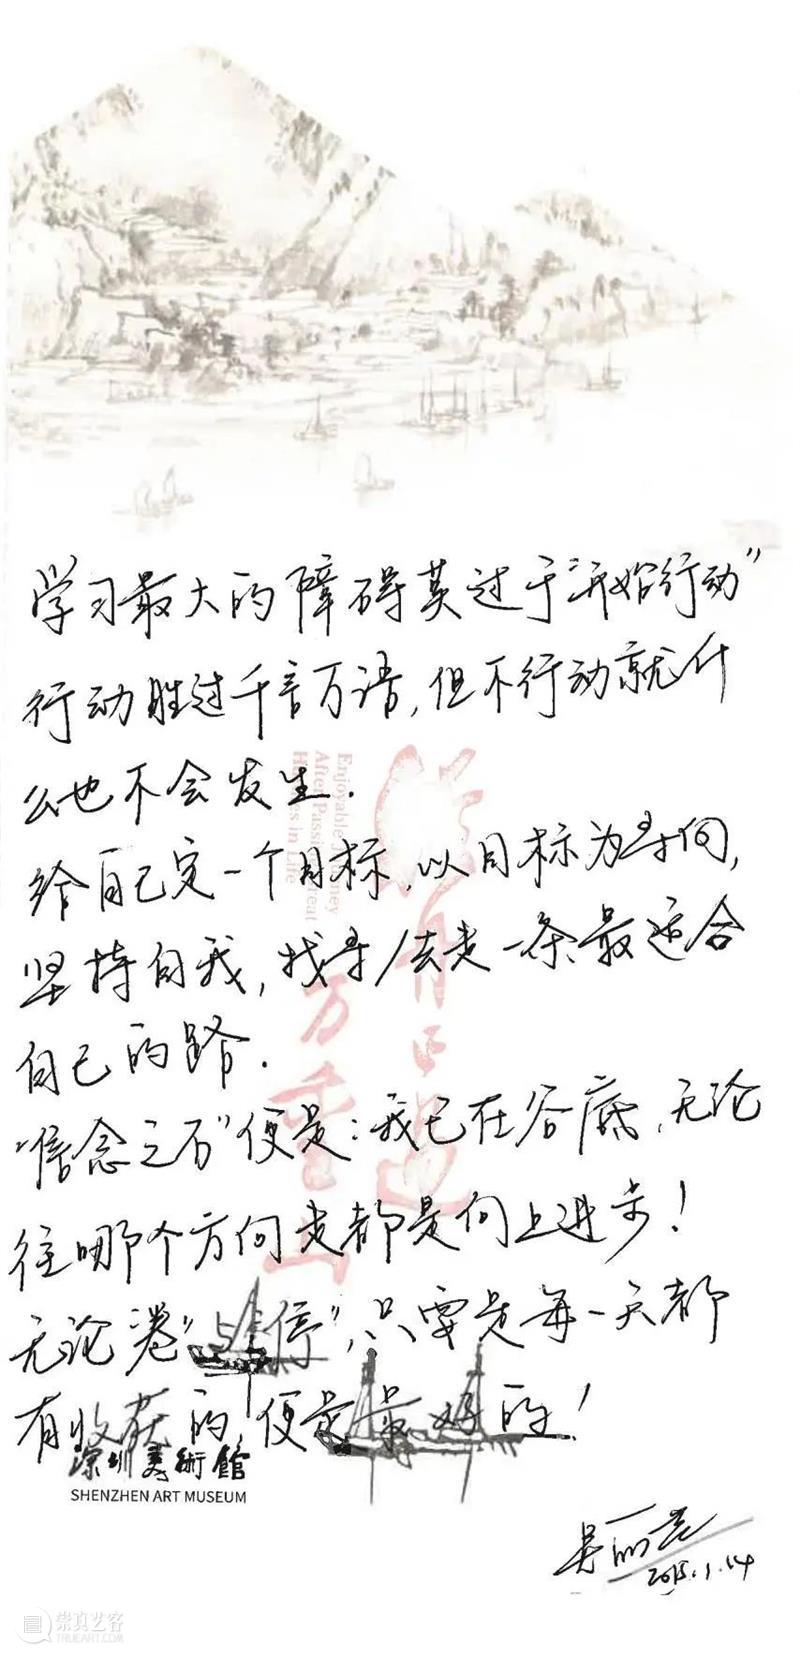 学习最大的障碍莫过于“开始行动”
行动胜过千言万语，但不行动就什
么也不会发生.
给自己定一个目标，以目标为导向，
坚持自我，找寻/去走一条最适合
自己的路.
“信念之石”便是：我已在谷底，无论
往哪个方向走都是向上进步！
无论卷“与”停”，只要是每一天都
有收获的，便是最好的！
Enjoyable Journey
After Passing Great
in Life
万重山
深圳美術館
SHENZHEN ART MUSEUM
崇真艺客
TRUEART.COM